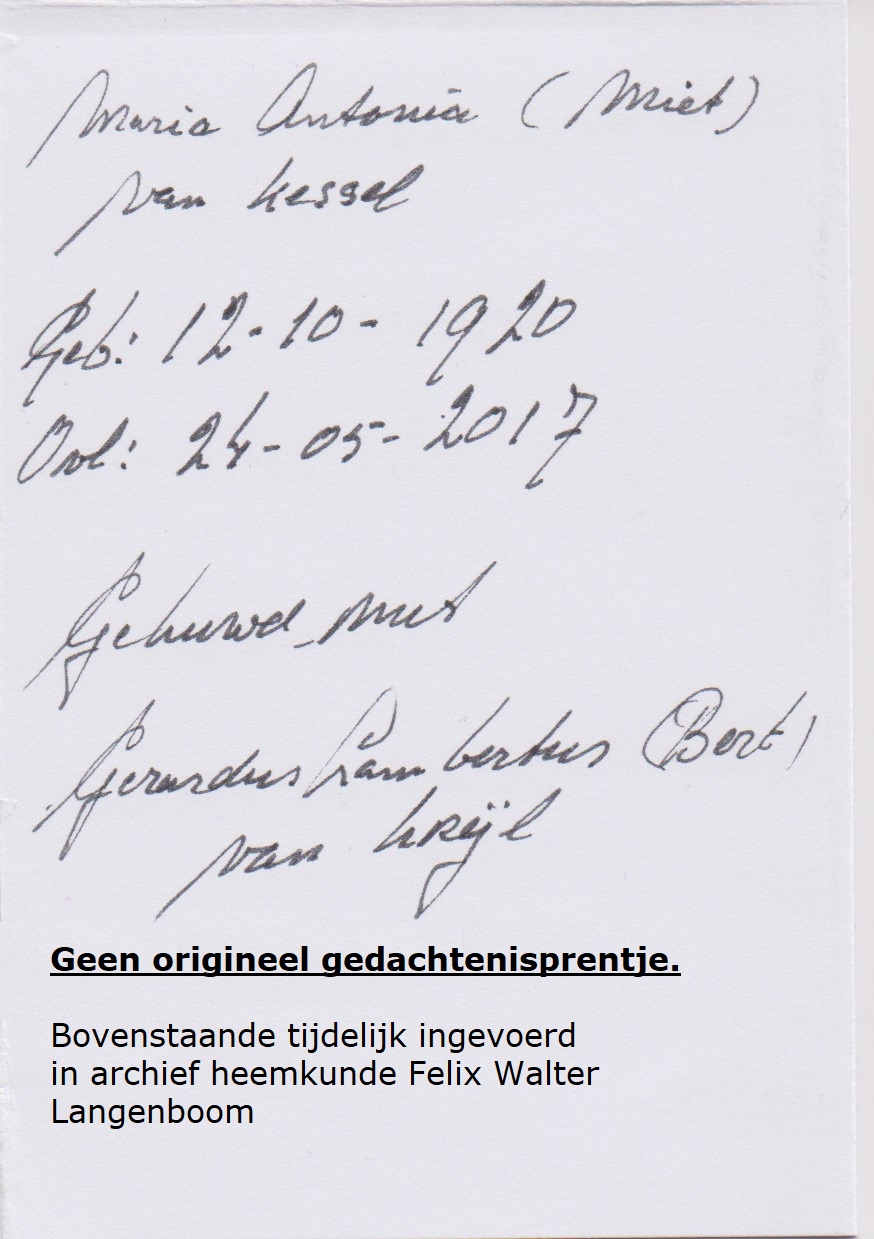 Maria Antonia (Miet)
van Kessel
Geb: 12-10-1920
Ovl: 24-05-2017
Gehuwd met
Gerardus Lambertus (Bert)
van
Geen origineel gedachtenisprentje.
Bovenstaande tijdelijk ingevoerd
in archief heemkunde Felix Walter
Langenboom